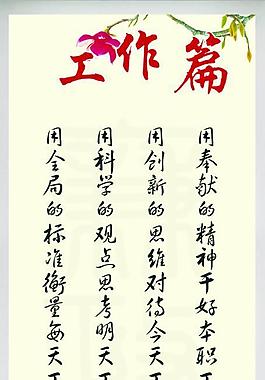 工作篇
用奉献的精神干好本职工
用创新的思维对待今天工
用科学的观点思考明天工
用全局的标准衡量每天工